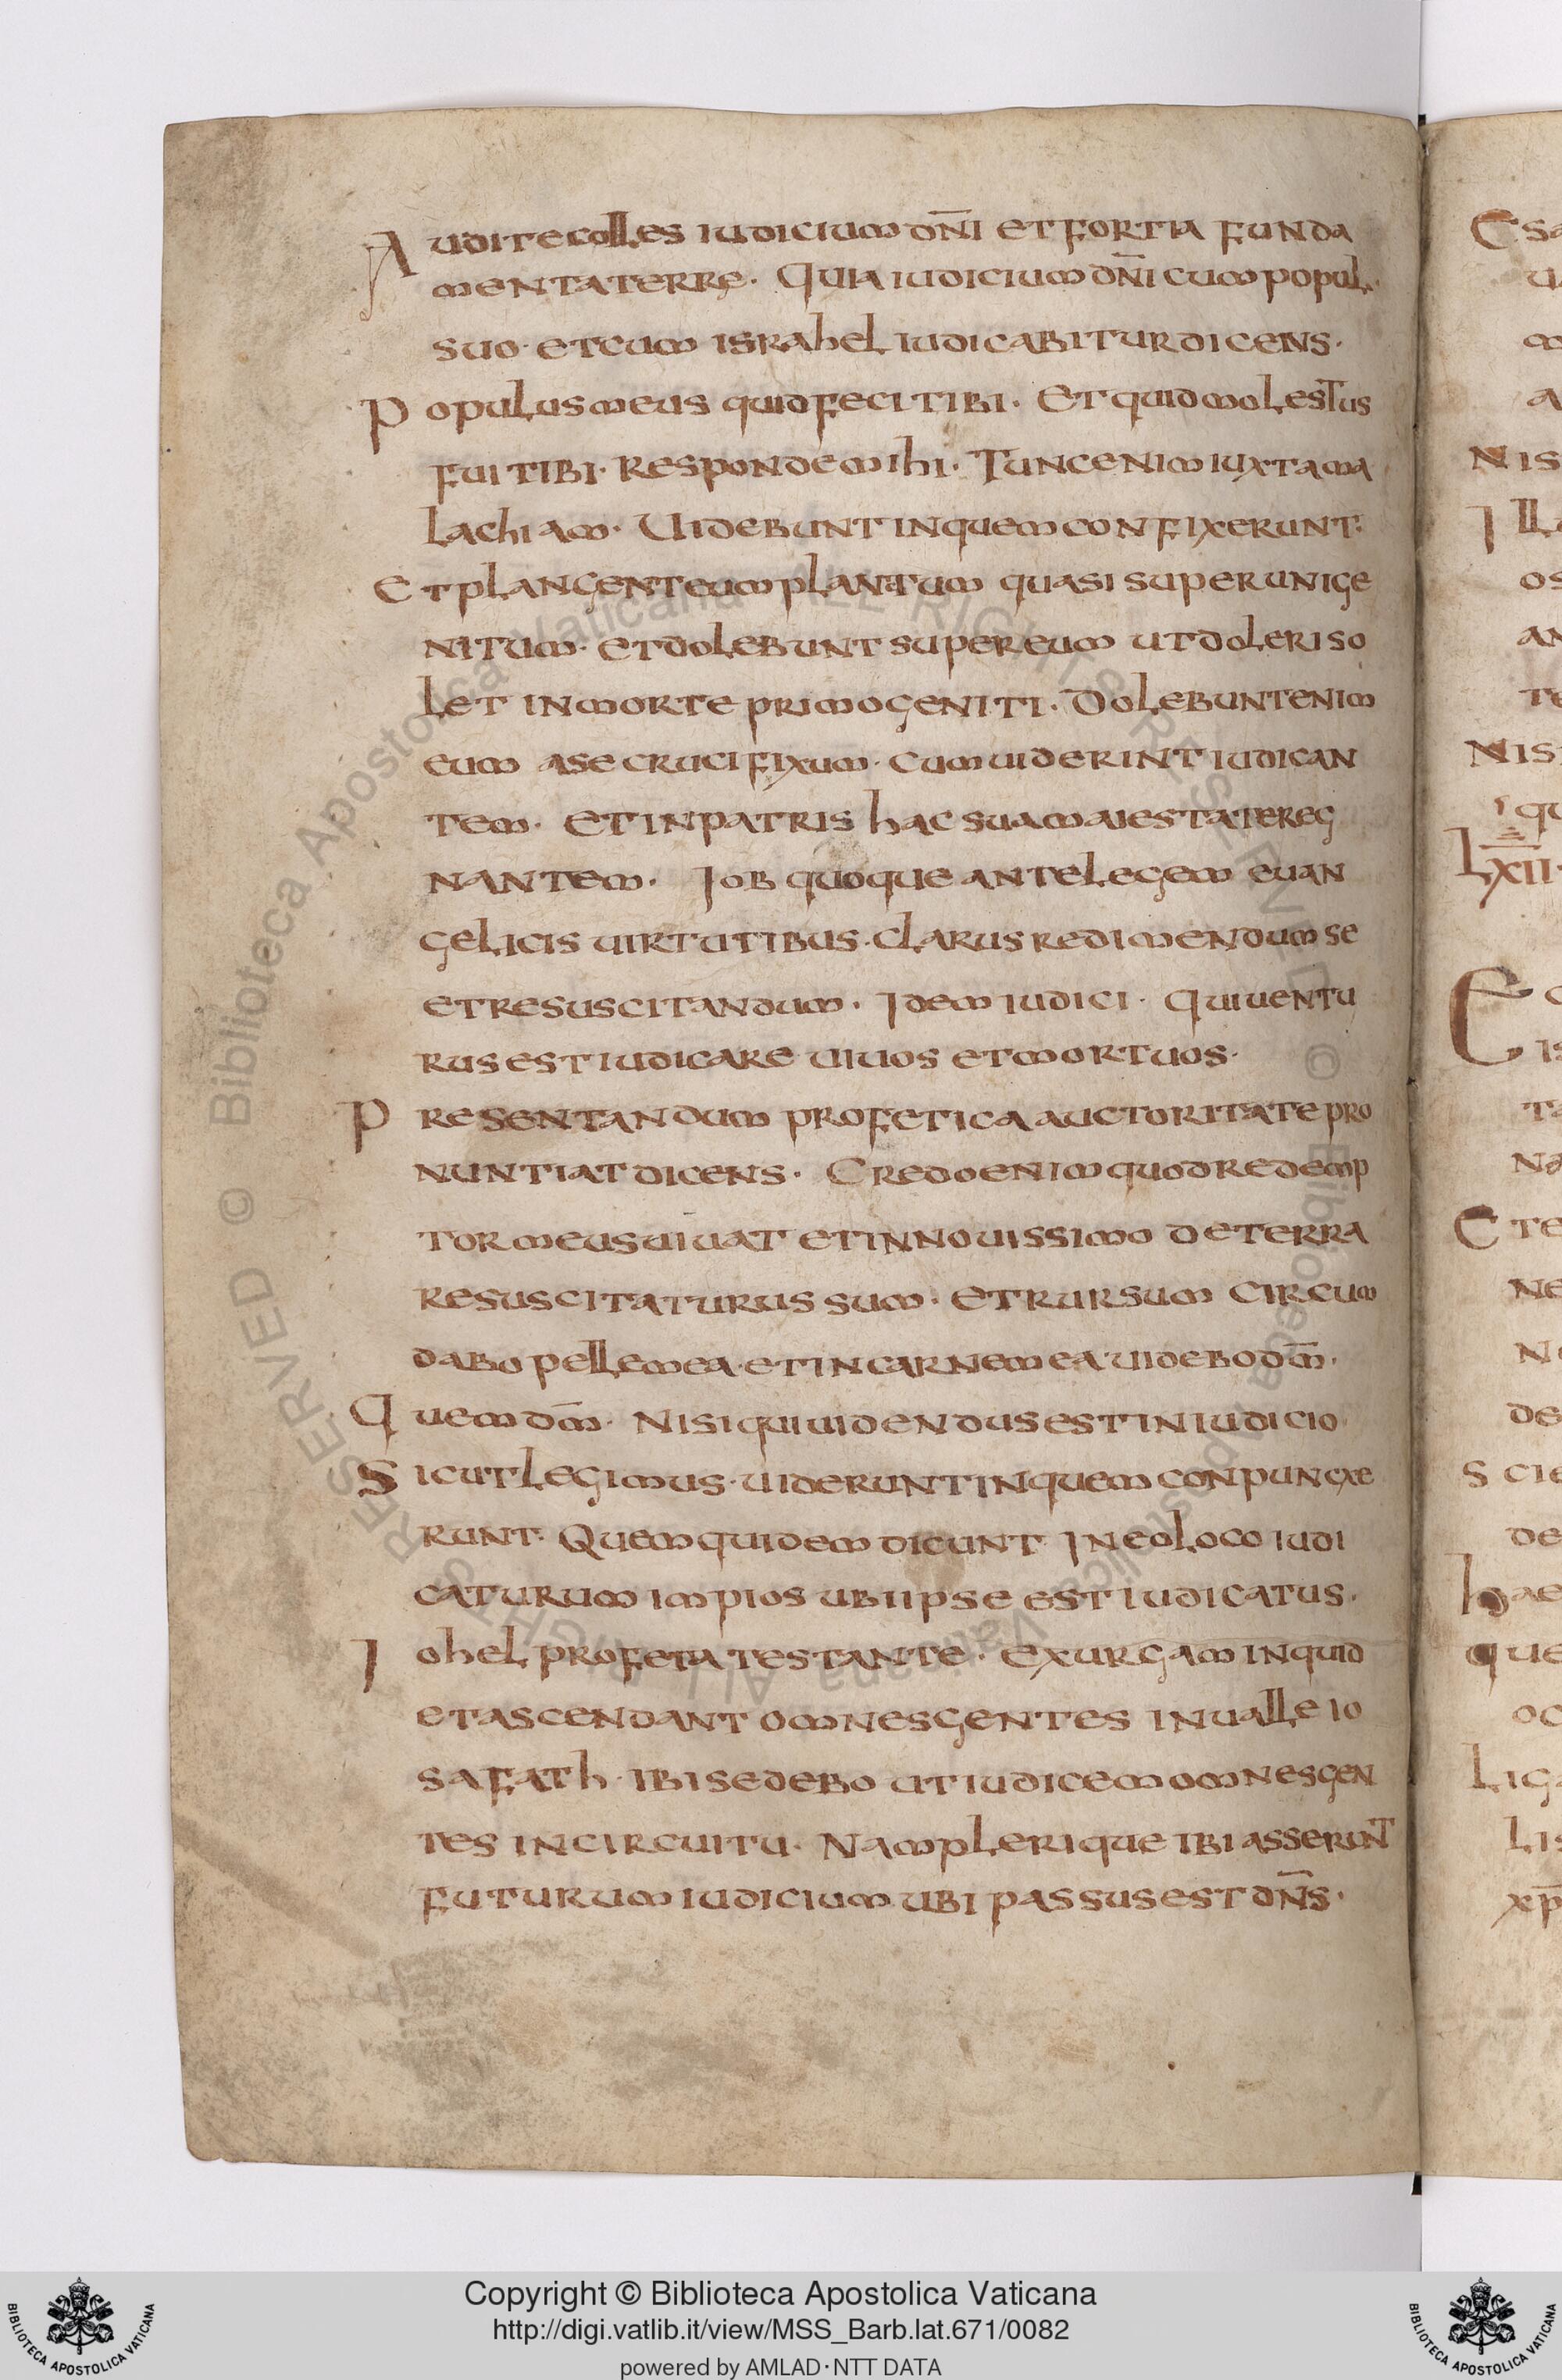 Auditecolles iudicium dn̄i etfortia funda
mentaterrę. Quia iudicium dn̄i cum popul·
suo· etcum israhel iudicabitur dicens·
Populus meus quid feci tibi· Et quid molestus
fui tibi· Responde mihi· Tunc enim iuxta ma
lachiam· Uidebunt inquem confixerunt:
Et plangent eum plantum quasi super unige
nitum· et dolebunt super eum ut doleri so
let in morte primogeniti· Dolebunt enim
eum a se crucifixum· cum uiderint iudican
tem· et in patris hac sua maiestate reg
nantem· Iob quoque ante legem euan
gelicis uirtutibus· clarus redimendum se
et resuscitandum· Idem iudici· qui uentu
rus est iudicare uiuos et mortuos·
Presentandum profetica auctoritate pro
nuntiat dicens· Credo enim quod redemp
tor meus uiuat et in nouissimo de terra
resuscitaturus sum· et rursum circum
dabo pellem ea· et in carnem ea· uidebo dm̄·
Quem dm̄· nisi qui uidendus est in iudicio·
Sicut legimus· uiderunt in quem conpunxe
runt· Quem quidem dicunt in eo loco iudi
caturum impios ubi ipse est iudicatus·
Iohel profeta testante· exurgam inquid
et ascendant omnes gentes in ualle io
safath· ibi sedebo ut iudicem omnes gen
tes in circuitu· Nam plerique ibi asserunt
futurum iudicium ubi passus est dn̄s·
Nis
Lxii·
Copyright © Biblioteca Apostolica Vaticana
http://digi.vatlib.it/view/MSS_Barb.lat.671/0082
powered by AMLAD·NTT DATA
BIBLIOTECA APOSTOLICA VATICANA
BIBLIOTECA APOSTOLICA VATICANA
© Biblioteca Apostolica Vaticana ALL RIGHTS RESERVED
© Biblioteca Apostolica Vaticana ALL RIGHTS RESERVED